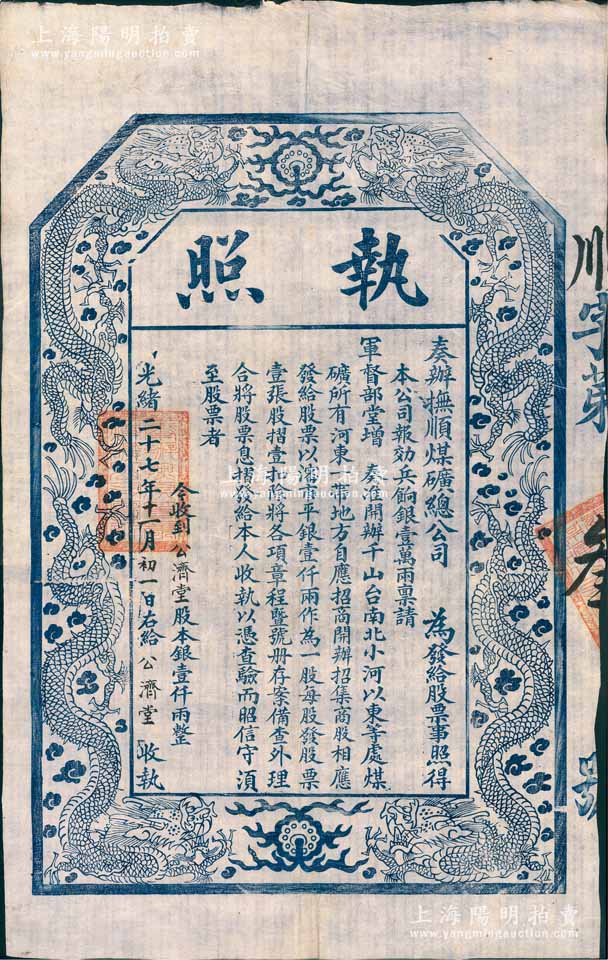 上海陽明拍賣
www.yangmingauction.com
執照
奏辦撫順煤礦總公司 為發給股票事照得
本公司報効兵餉銀壹萬兩禀請
軍督部堂增 奏准開辦千山台南北小河以東等處煤
礦所有河東 地方自應招商開辦招集商股相應
發給股票以 平銀壹仟兩作為一股每股發股票
壹張股摺壹扣 將各項章程曁號册存案備查外理
合將股票息摺發給本人收執以憑查驗而昭信守須
至股票者
今收到公濟堂股本銀壹仟兩整
光緒二十七年十一月初一日右給公濟堂收執
順字第叁號
上海陽明拍賣
www.yangmingauction.com
上海陽明拍賣
www.yangmingauction.com